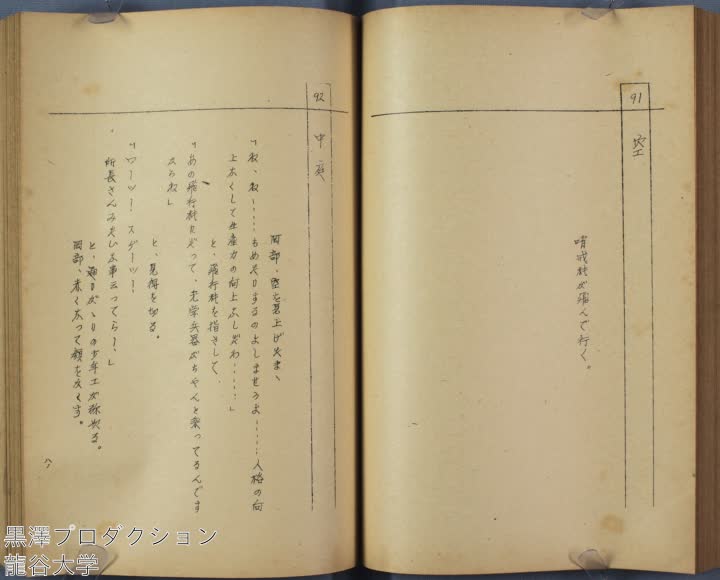 91
空
哨戒機が飛んで行く。
92
中庭
岡部、空を見上げたまゝ、
「ね、ね……もめたりするのよしませうよ……人格の向
上なくして生産力の向上なしだわ……」
と、飛行機を指さして、
「あの飛行機にだって、光学兵器がちやんと乗ってるんです
からね」
と、見得を切る。
「ワーッ! スゲーッ!
所長さんみたいな事云ってらー、」
と、通りがゝりの少年工がひやかる。
岡部、赤くなって頭をかくす。
八一
黒澤プロダクション
龍谷大学